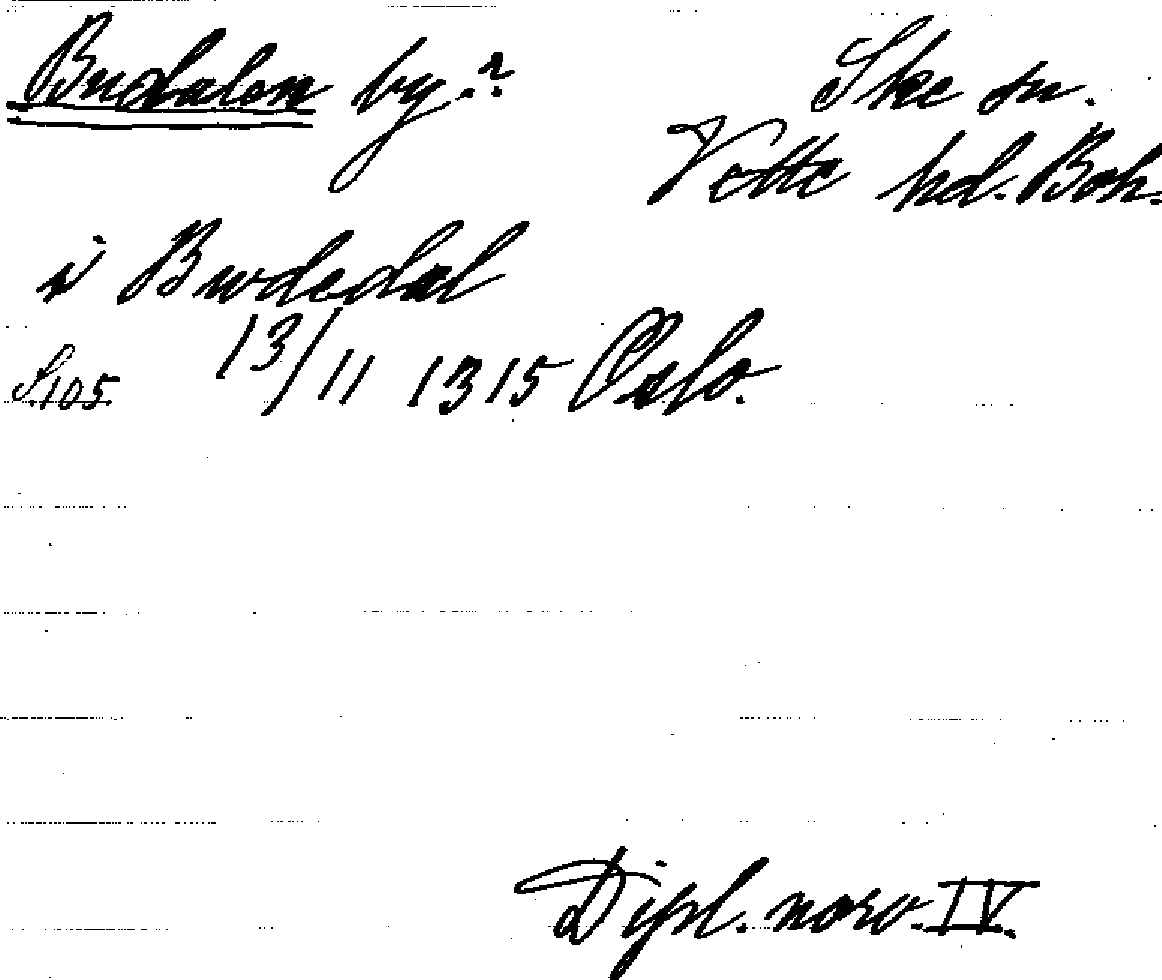 Budalen by.? Skee sn.
Vette hd. Boh.
i Burdedal
S. 105 13/11 1315 Oslo.
Dipl. norv. IV.